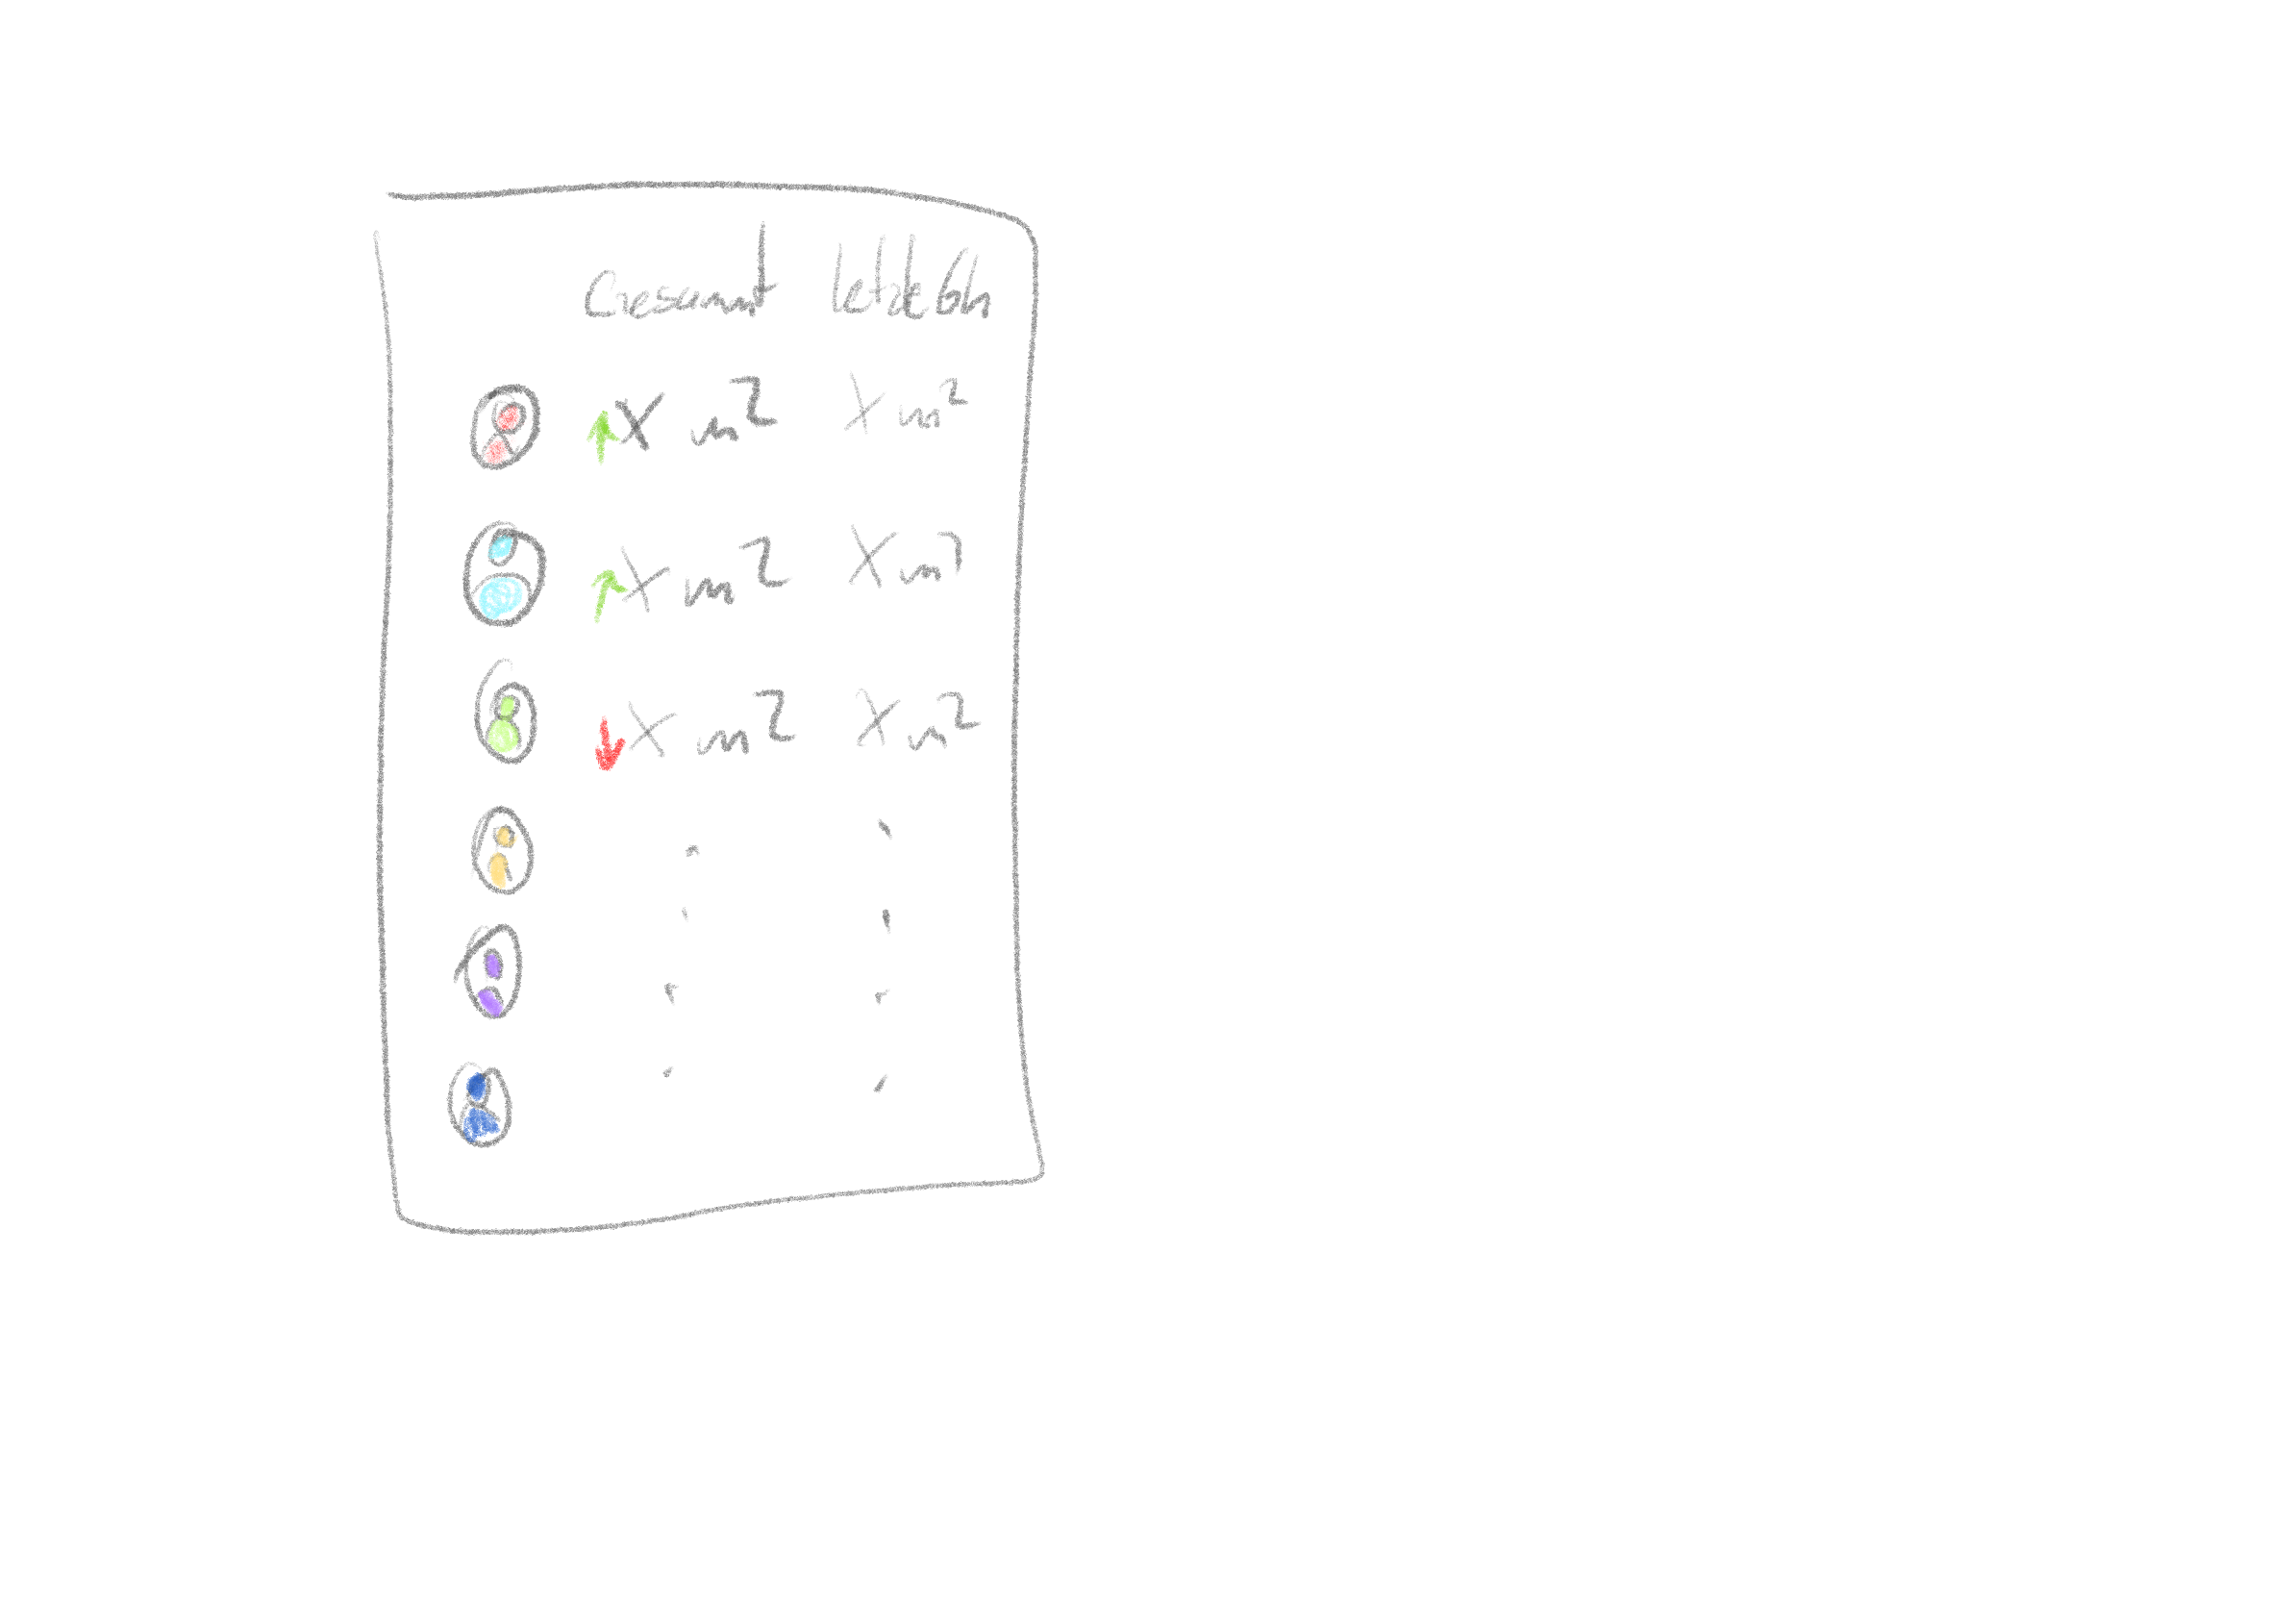 Gesamt letzte 6h
X m² X m²
X m² X m²
X m² X m²